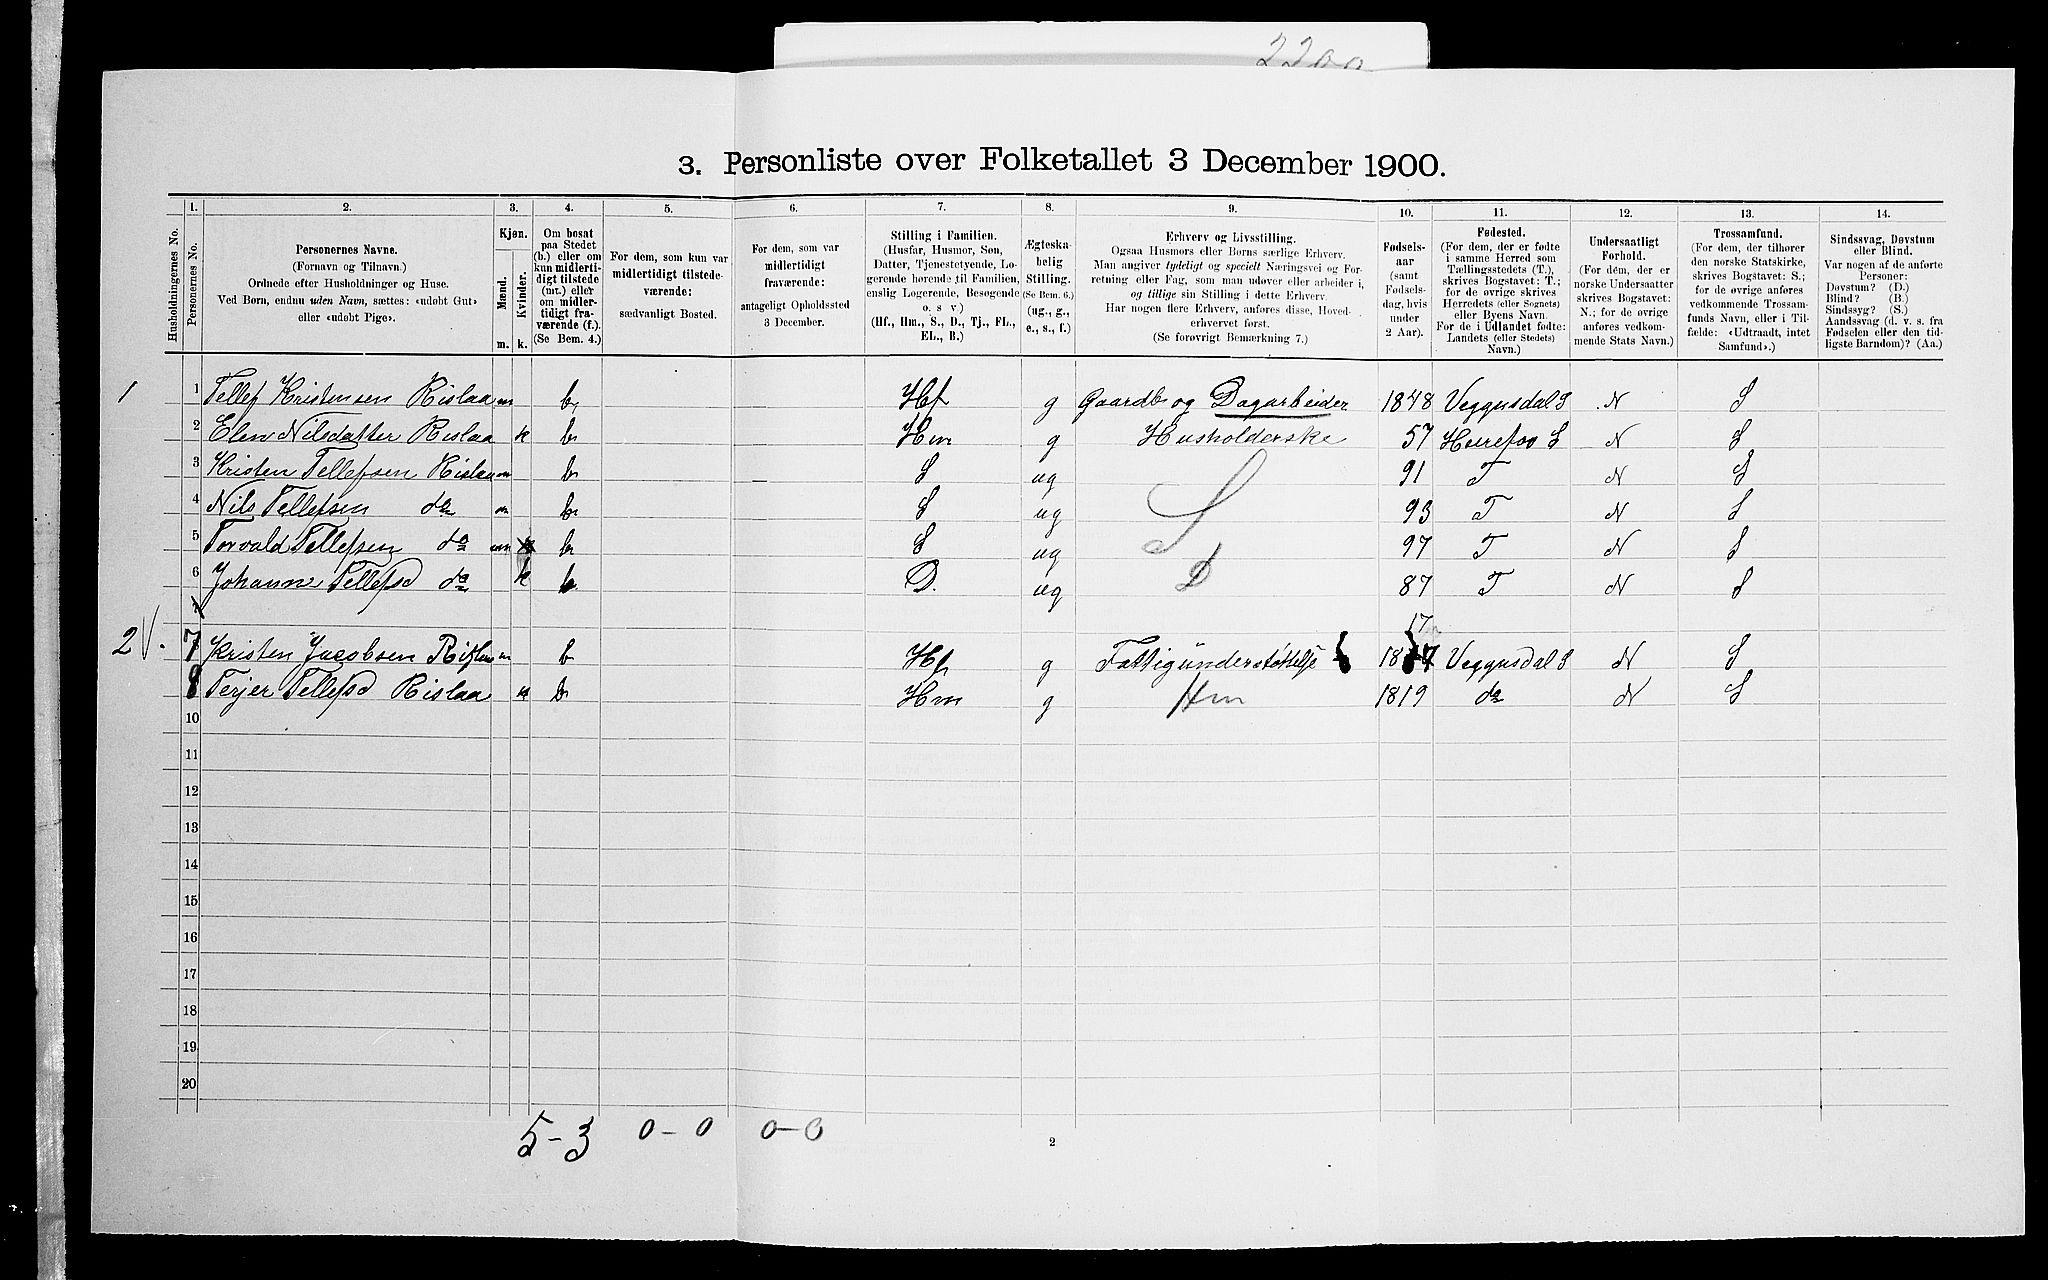 2200
3. Personliste over Folketallet 3 December 1900.
1. 2. 3. 4. 5. 6. 7. 8. 9. 10. 11. 12. 13. 14.
Husholdningernes No.
Personernes No.
Personernes Navne.
(Fornavn og Tilnavn.)
Ordnede efter Husholdninger og Huse.
Ved Børn, endnu uden Navn, sættes: «udøbt Gut»
eller «udøbt Pige».
Kjøn.
Mænd.
Kvinder.
m. k.
Om bosat
paa Stedet
(b.) eller om
kun midlerti-
digt tilstede
(mt.) eller
om midler-
tidigt fra-
værende (f.).
(Se Bem. 4.)
For dem, som kun var
midlertidigt tilstede-
værende:
sædvanligt Bosted.
For dem, som var
midlertidigt
fraværende:
antageligt Opholdssted
3 December.
Stilling i Familien.
(Husfar, Husmor, Søn,
Datter, Tjenestetyende, Lo-
gerende hørende til Familien,
enslig Logerende, Besøgende
o. s. v.)
(Hf., Hm., S., D., Tj., FL.,
EL., B.)
Ægteska-
belig
Stilling.
(Se Bem. 6.)
(ug., g.,
e., s., f.)
Erhverv og Livsstilling.
Ogsaa Husmors eller Børns særlige Erhverv.
Man angiver tydeligt og specielt Næringsvei og For-
retning eller Fag, som man udøver eller arbeider i,
og tillige sin Stilling i dette Erhverv.
Har nogen flere Erhverv, anføres disse, Hoved-
erhvervet først.
(Se forøvrigt Bemærkning 7.)
Fødsels-
aar
(samt
Fødsels-
dag, hvis
under
2 Aar).
Fødested.
(For dem, der er fødte
i samme Herred som
Tællingsstedets (T.),
skrives Bogstavet: T.;
for de øvrige skrives
Herredets (eller Sognets)
eller Byens Navn.
For de i Udlandet fødte:
Landets (eller Stedets)
Navn.)
Undersaatligt
Forhold.
(For dem, der er
norske Undersaatter
skrives Bogstavet:
N.; for de øvrige
anføres vedkom-
mende Stats Navn.)
Trossamfund.
(For dem, der tilhører
den norske Statskirke,
skrives Bogstavet: S.;
for de øvrige anføres
vedkommende Trossam-
funds Navn, eller i Til-
fælde: «Udtraadt, intet
Samfund».)
Sindssvag, Døvstum
eller Blind.
Var nogen af de anførte
Personer:
Døvstum? (D.)
Blind? (B.)
Sindssyg? (S.)
Aandssvag (d. v. s. fra
Fødselen eller den tid-
ligste Barndom)? (Aa.)
1 1 Tellef Kristensen Rislaa m b. Hf g Gaardb og Dagarbeider 1848 Veggusdal S N S
2 Elen Nilsdatter Rislaa k b Hm g Husholderske 57 Heirefos S N S
3 Kristen Tellefsen Rislaa m b S ug 91 T N S
4 Nils Tellefsen do m b S ug S 93 T N S
5 Torvald Tellefsen do m b S ug 97 T N S
6 Johanne Tellefsd do k b D. ug D 87 T N S
17
2 7 Kristen Jacobsen Rislaa m b Hf g Fattigünderstøttelse Veggusdal S N S
8 Terjer Tellefsd Rislaa k b Hm g Hm 1819 do N S
10
11
12
13
14
15
16
17
18
19
20
5-3 0-0 0-0
2